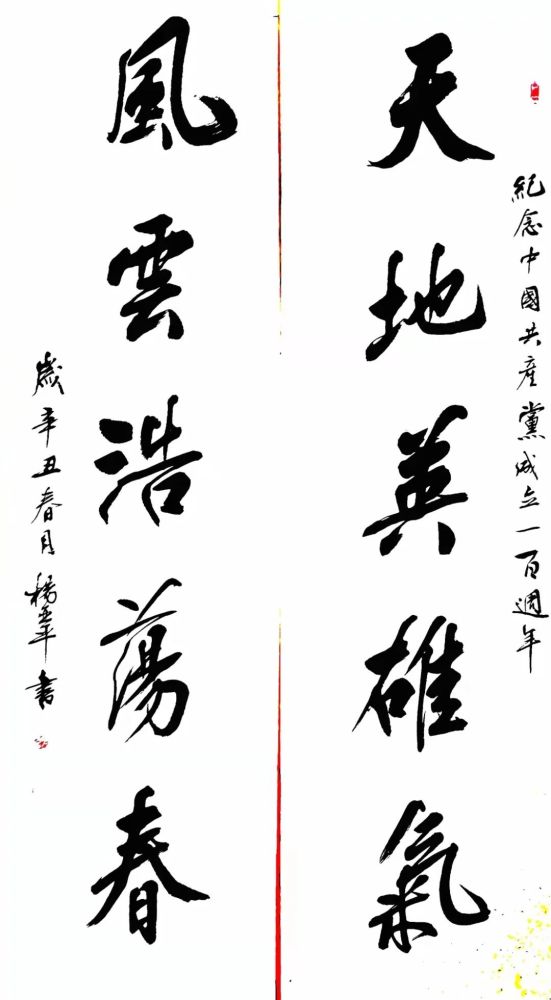 紀念中國共產黨成立一百週年
天地英雄氣
風雲浩蕩春
歲辛丑春月楊亞平書